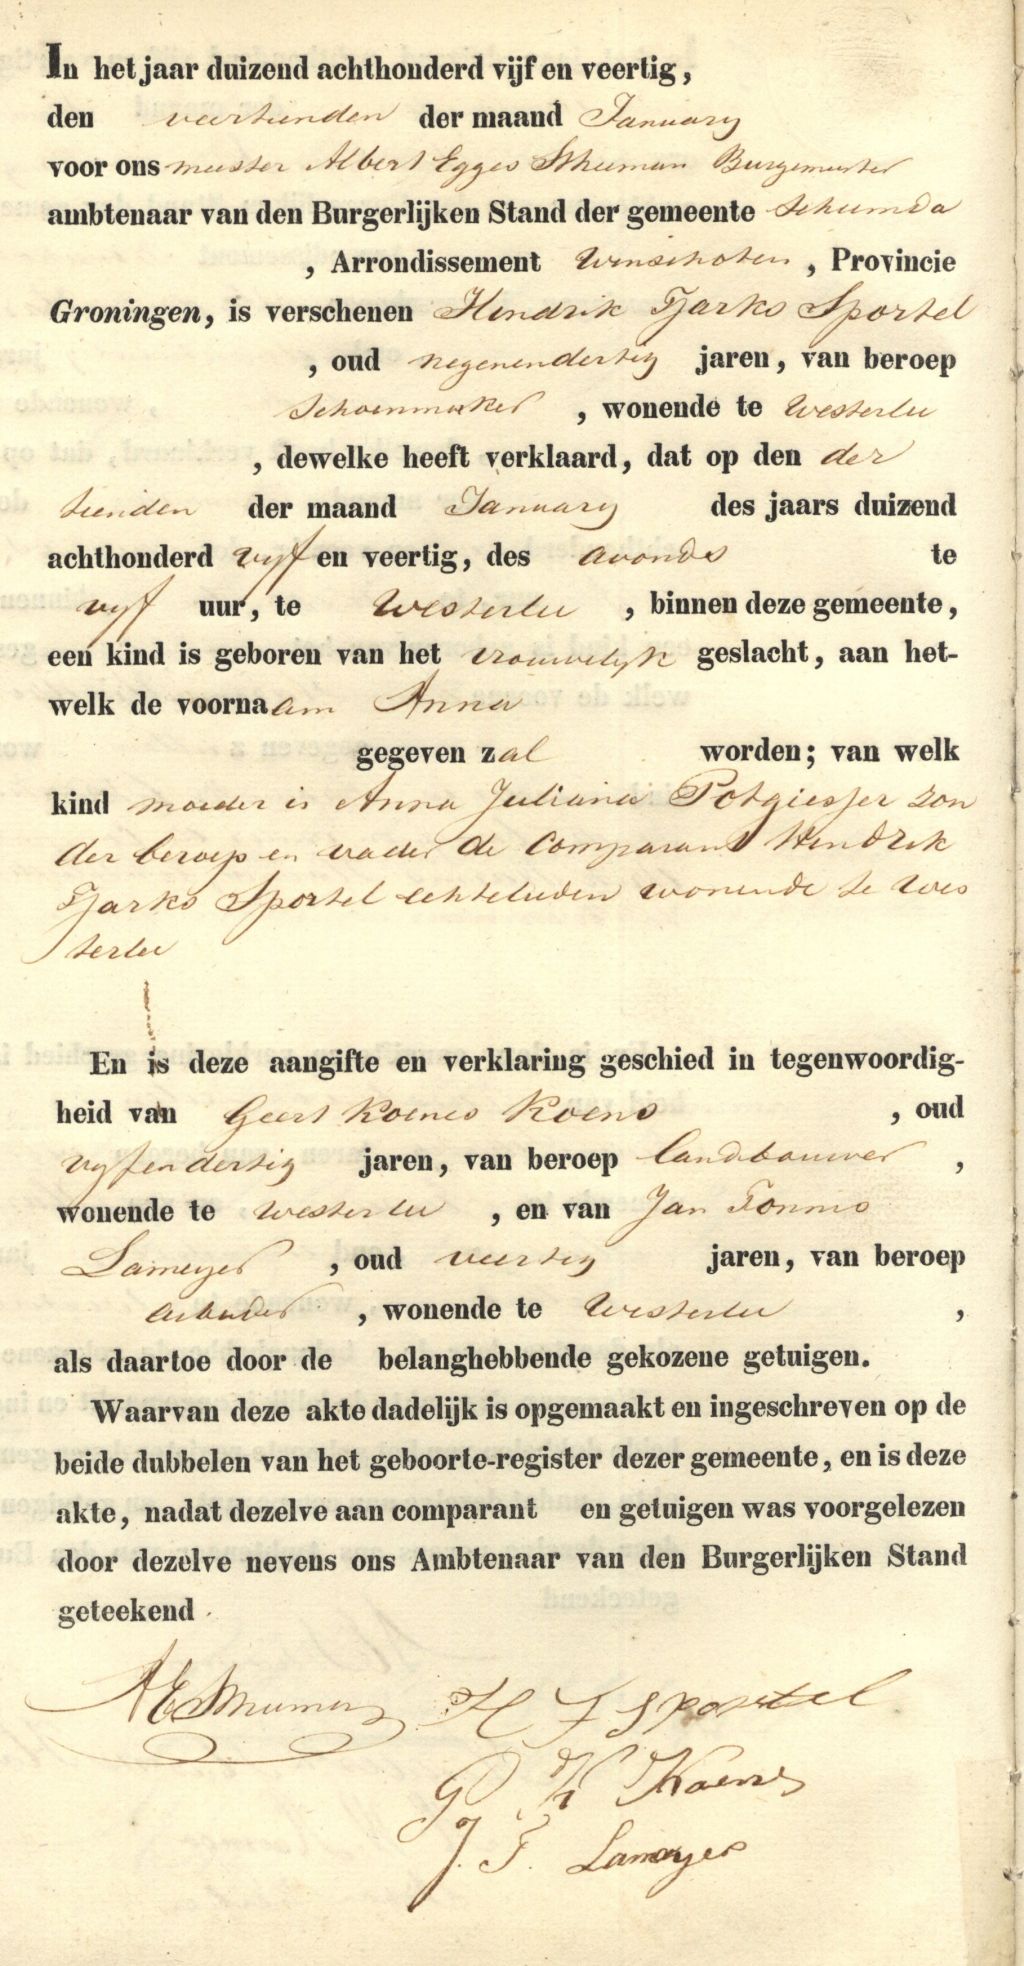 In het jaar duizend achthonderd vijf en veertig,
den veertienden der maand January
voor ons meester Albert Egges Stheeman Burgemeester
ambtenaar van den Burgerlijken Stand der gemeente Scheemda
, Arrondissement Winschoten, Provincie
Groningen, is verschenen Hendrik Tjarks Sportel
, oud negenendertig jaren, van beroep
Schoenmaker, wonende te Westerlee
, dewelke heeft verklaard, dat op den der
tienden der maand January des jaars duizend
achthonderd vyf en veertig, des avonds te
vyf uur, te Westerlee, binnen deze gemeente,
een kind is geboren van het vrouwelyk geslacht, aan het-
welk de voornaam Anna
gegeven zal worden; van welk
kind moeder is Anna Juliana Potgiesser zon
der beroep en vader de Comparant Hendrik
Tjarks Sportel echtelieden wonende te Wes
terlee
En is deze aangifte en verklaring geschied in tegenwoordig-
heid van Geert Koenes Koens, oud
vyfendertig jaren, van beroep landbouwer,
wonende te Westerlee, en van Jan Tonnis
Lameyer, oud veertig jaren, van beroep
arbeider, wonende te Westerlee,
als daartoe door de belanghebbende gekozene getuigen.
Waarvan deze akte dadelijk is opgemaakt en ingeschreven op de
beide dubbelen van het geboorte-register dezer gemeente, en is deze
akte, nadat dezelve aan comparant en getuigen was voorgelezen
door dezelve nevens ons Ambtenaar van den Burgerlijken Stand
geteekend.
AEStheeman H T Sportel
G K Koens
J. T. Lameyer